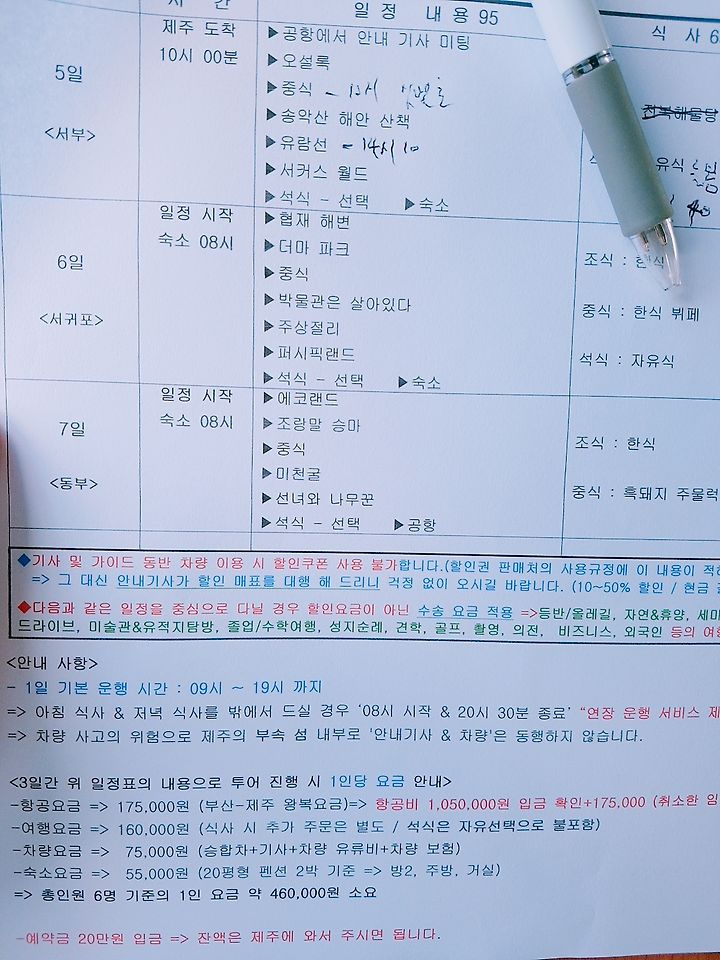 시 간
일 정 내 용 95
식 사 6
5일
<서부>
제주 도착
10시 00분
▶공항에서 안내 기사 미팅
▶오설록
▶중식
▶송악산 해안 산책
▶유람선 - 14시 10
▶서커스 월드
▶석식 - 선택 ▶숙소
전복해물탕
유식
6일
<서귀포>
일정 시작
숙소 08시
▶협재 해변
▶더마 파크
▶중식
▶박물관은 살아있다
▶주상절리
▶퍼시픽랜드
▶석식 - 선택 ▶숙소
조식 : 한식
중식 : 한식 뷔페
석식 : 자유식
7일
<동부>
일정 시작
숙소 08시
▶에코랜드
▶조랑말 승마
▶중식
▶미천굴
▶선녀와 나무꾼
▶석식 - 선택 ▶공항
조식 : 한식
중식 : 흑돼지 주물럭
◆기사 및 가이드 동반 차량 이용 시 할인쿠폰 사용 불가합니다.(할인권 판매처의 사용규정에 이 내용이 적
=> 그 대신 안내기사가 할인 매표를 대행 해 드리니 걱정 없이 오시길 바랍니다. (10~50% 할인 / 현금
◆다음과 같은 일정을 중심으로 다닐 경우 할인요금이 아닌 수송 요금 적용 =>등반/올레길, 자연&휴양, 세미
드라이브, 미술관&유적지탐방, 졸업/수학여행, 성지순례, 견학, 골프, 촬영, 의전, 비즈니스, 외국인 등의 여
<안내 사항>
- 1일 기본 운행 시간 : 09시 ~ 19시 까지
=> 아침 식사 & 저녁 식사를 밖에서 드실 경우 '08시 시작 & 20시 30분 종료' "연장 운행 서비스 제
=> 차량 사고의 위험으로 제주의 부속 섬 내부로 '안내기사 & 차량'은 동행하지 않습니다.
<3일간 위 일정표의 내용으로 투어 진행 시 1인당 요금 안내>
-항공요금 => 175,000원 (부산-제주 왕복요금)=> 항공비 1,050,000원 입금 확인+175,000 (취소한 임
-여행요금 => 160,000원 (식사 시 추가 주문은 별도 / 석식은 자유선택으로 불포함)
-차량요금 => 75,000원 (승합차+기사+차량 유류비+차량 보험)
-숙소요금 => 55,000원 (20평형 펜션 2박 기준 => 방2, 주방, 거실)
=> 총인원 6명 기준의 1인 요금 약 460,000원 소요
-예약금 20만원 입금 => 잔액은 제주에 와서 주시면 됩니다.